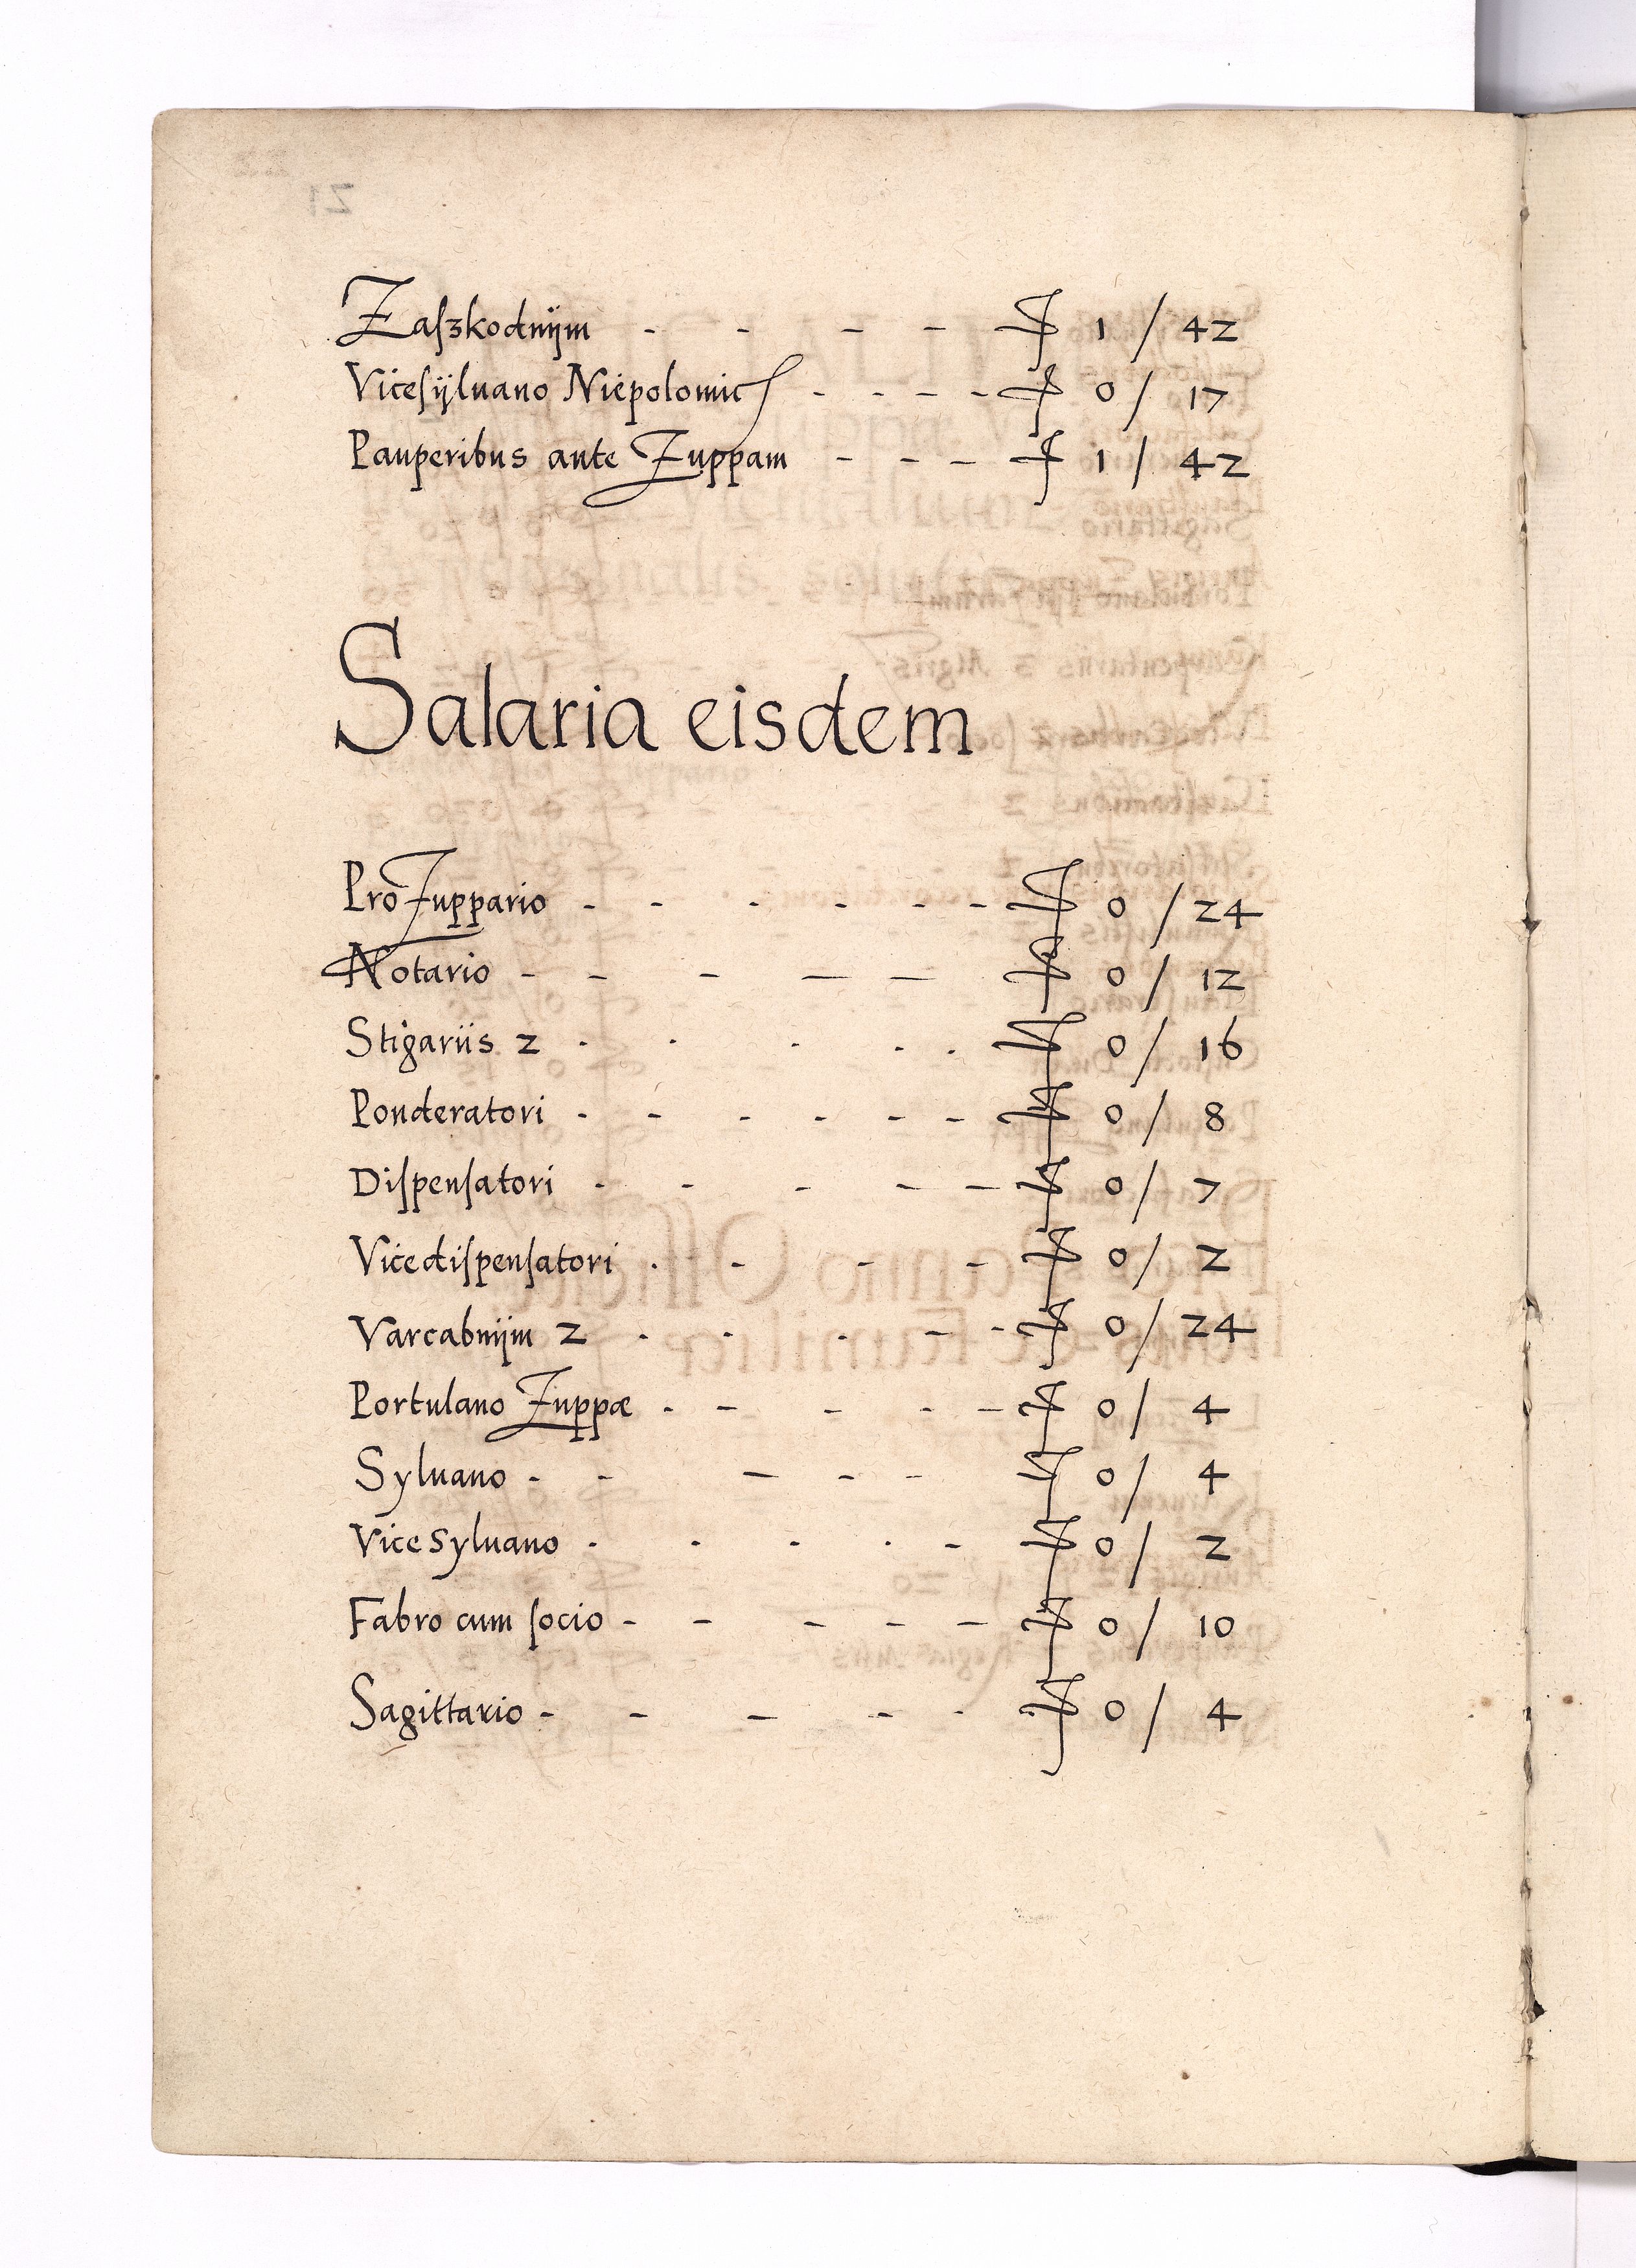 Zaſzkodnijm - - - - ƒ 1 / 42
Viceſijluano Niepolomic - - - - ƒ 0 / 17
Pauperibus ante Zuppam - - - ƒ 1 / 42
Salaria eisdem
ProZuppario - - - - - - ƒ 0 / 24
Notario - - - - - ƒ 0 / 12
Stigariis 2 - - - - - ƒ 0 / 16
Ponderatori - - - - - - ƒ 0 / 8
Diſpenſatori - - - - - ƒ 0 / 7
Vicediſpenſatori - - - - ƒ 0 / 2
Varcabnijm 2 - - - - - ƒ 0 / 24
Portulano Zuppæ - - - - - ƒ 0 / 4
Syluano - - - - - ƒ 0 / 4
Vicesyluano - - - - - ƒ 0 / 2
Fabro cum ſocio - - - - - ƒ 0 / 10
Sagittario - - - - - ƒ 0 / 4